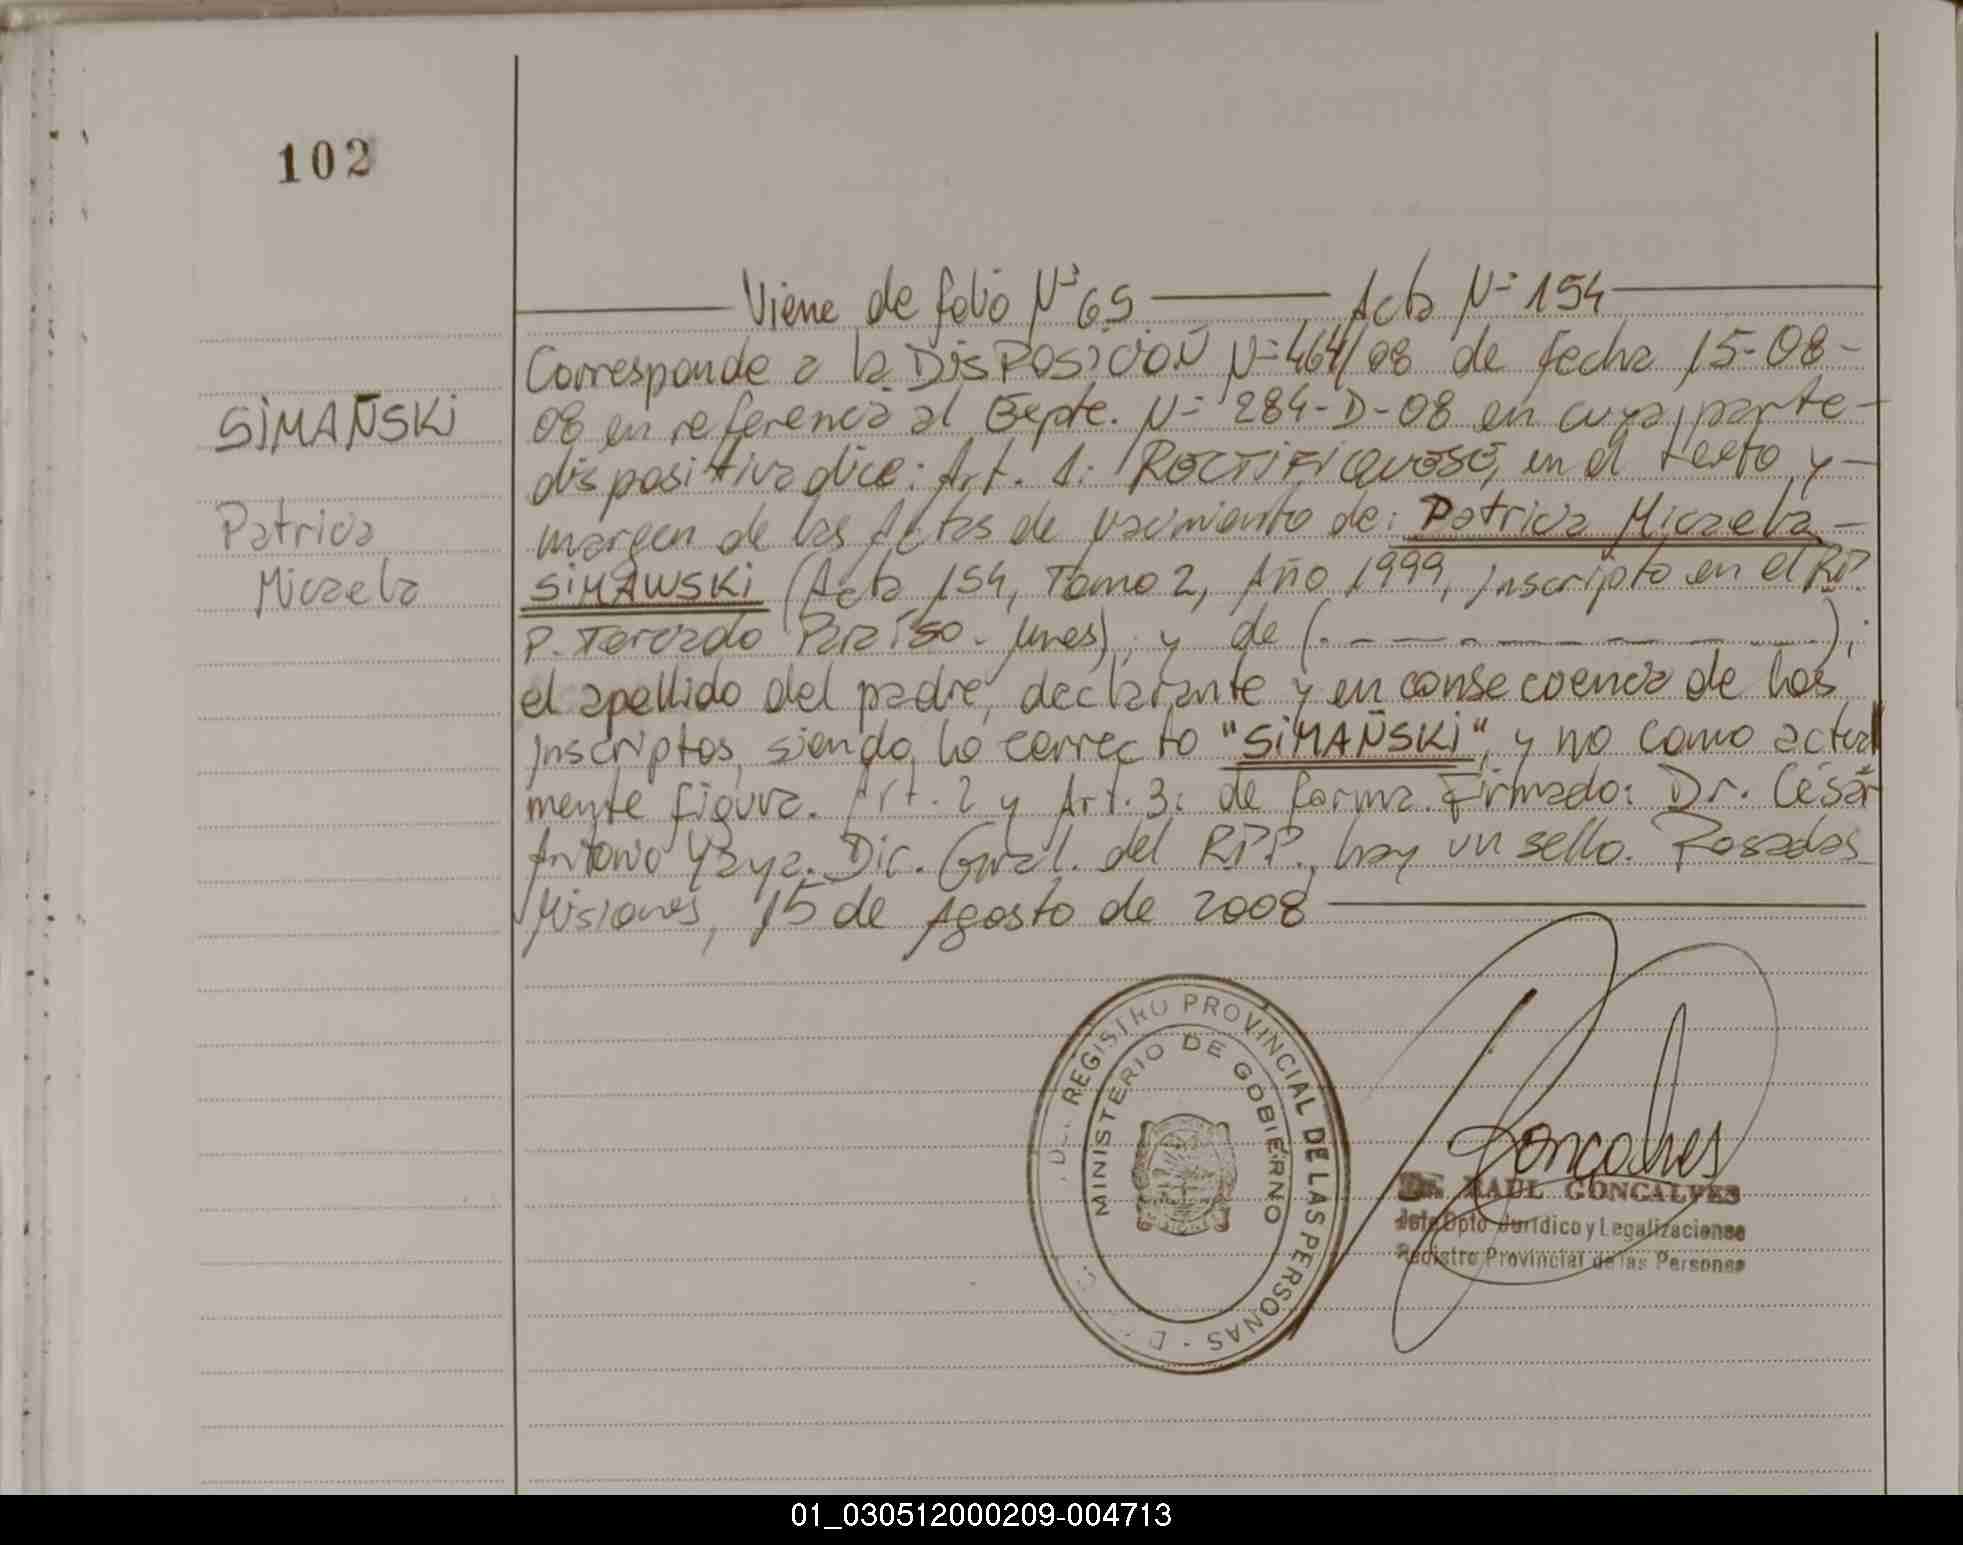 102
Viene de folio Nº 69 Acta Nº 154
Corresponde a la DISPOSICION Nº 464/08 de fecha 15-08-
SIMAÑSKI
08 en referencia al Expte. Nº 284-D-08 en cuya parte-
dispositiva dice: Art. 1: RECTIFIQUESE, en el texto y-
Patricia
margen de las Actas de nacimiento de: Patricia Micaela-
Micaela
SIMAWSKI (Acta 154, Tomo 2, Año 1999, Inscripto en el RP
P. Terrado Paraíso-Mnes), y de (- - - - - - -);
el apellido del padre, declarante y en consecuencia de los
Inscriptos, siendo lo correcto "SIMAÑSKI", y no como actual
mente figura. Art. 2 y Art. 3: de forma. Firmado: Dr. César
Antonio Yaya. Dic. Gral. del RPP., hay un sello. Posadas
Misiones, 15 de Agosto de 2008
REGISTRO PROVINCIAL DE LAS PERSONAS
MINISTERIO DE GOBIERNO
Goncalves
Dr. RAUL GONCALVES
Jefe Dpto Jurídico y Legalizaciones
Registro Provincial de las Personas
01_030512000209-004713